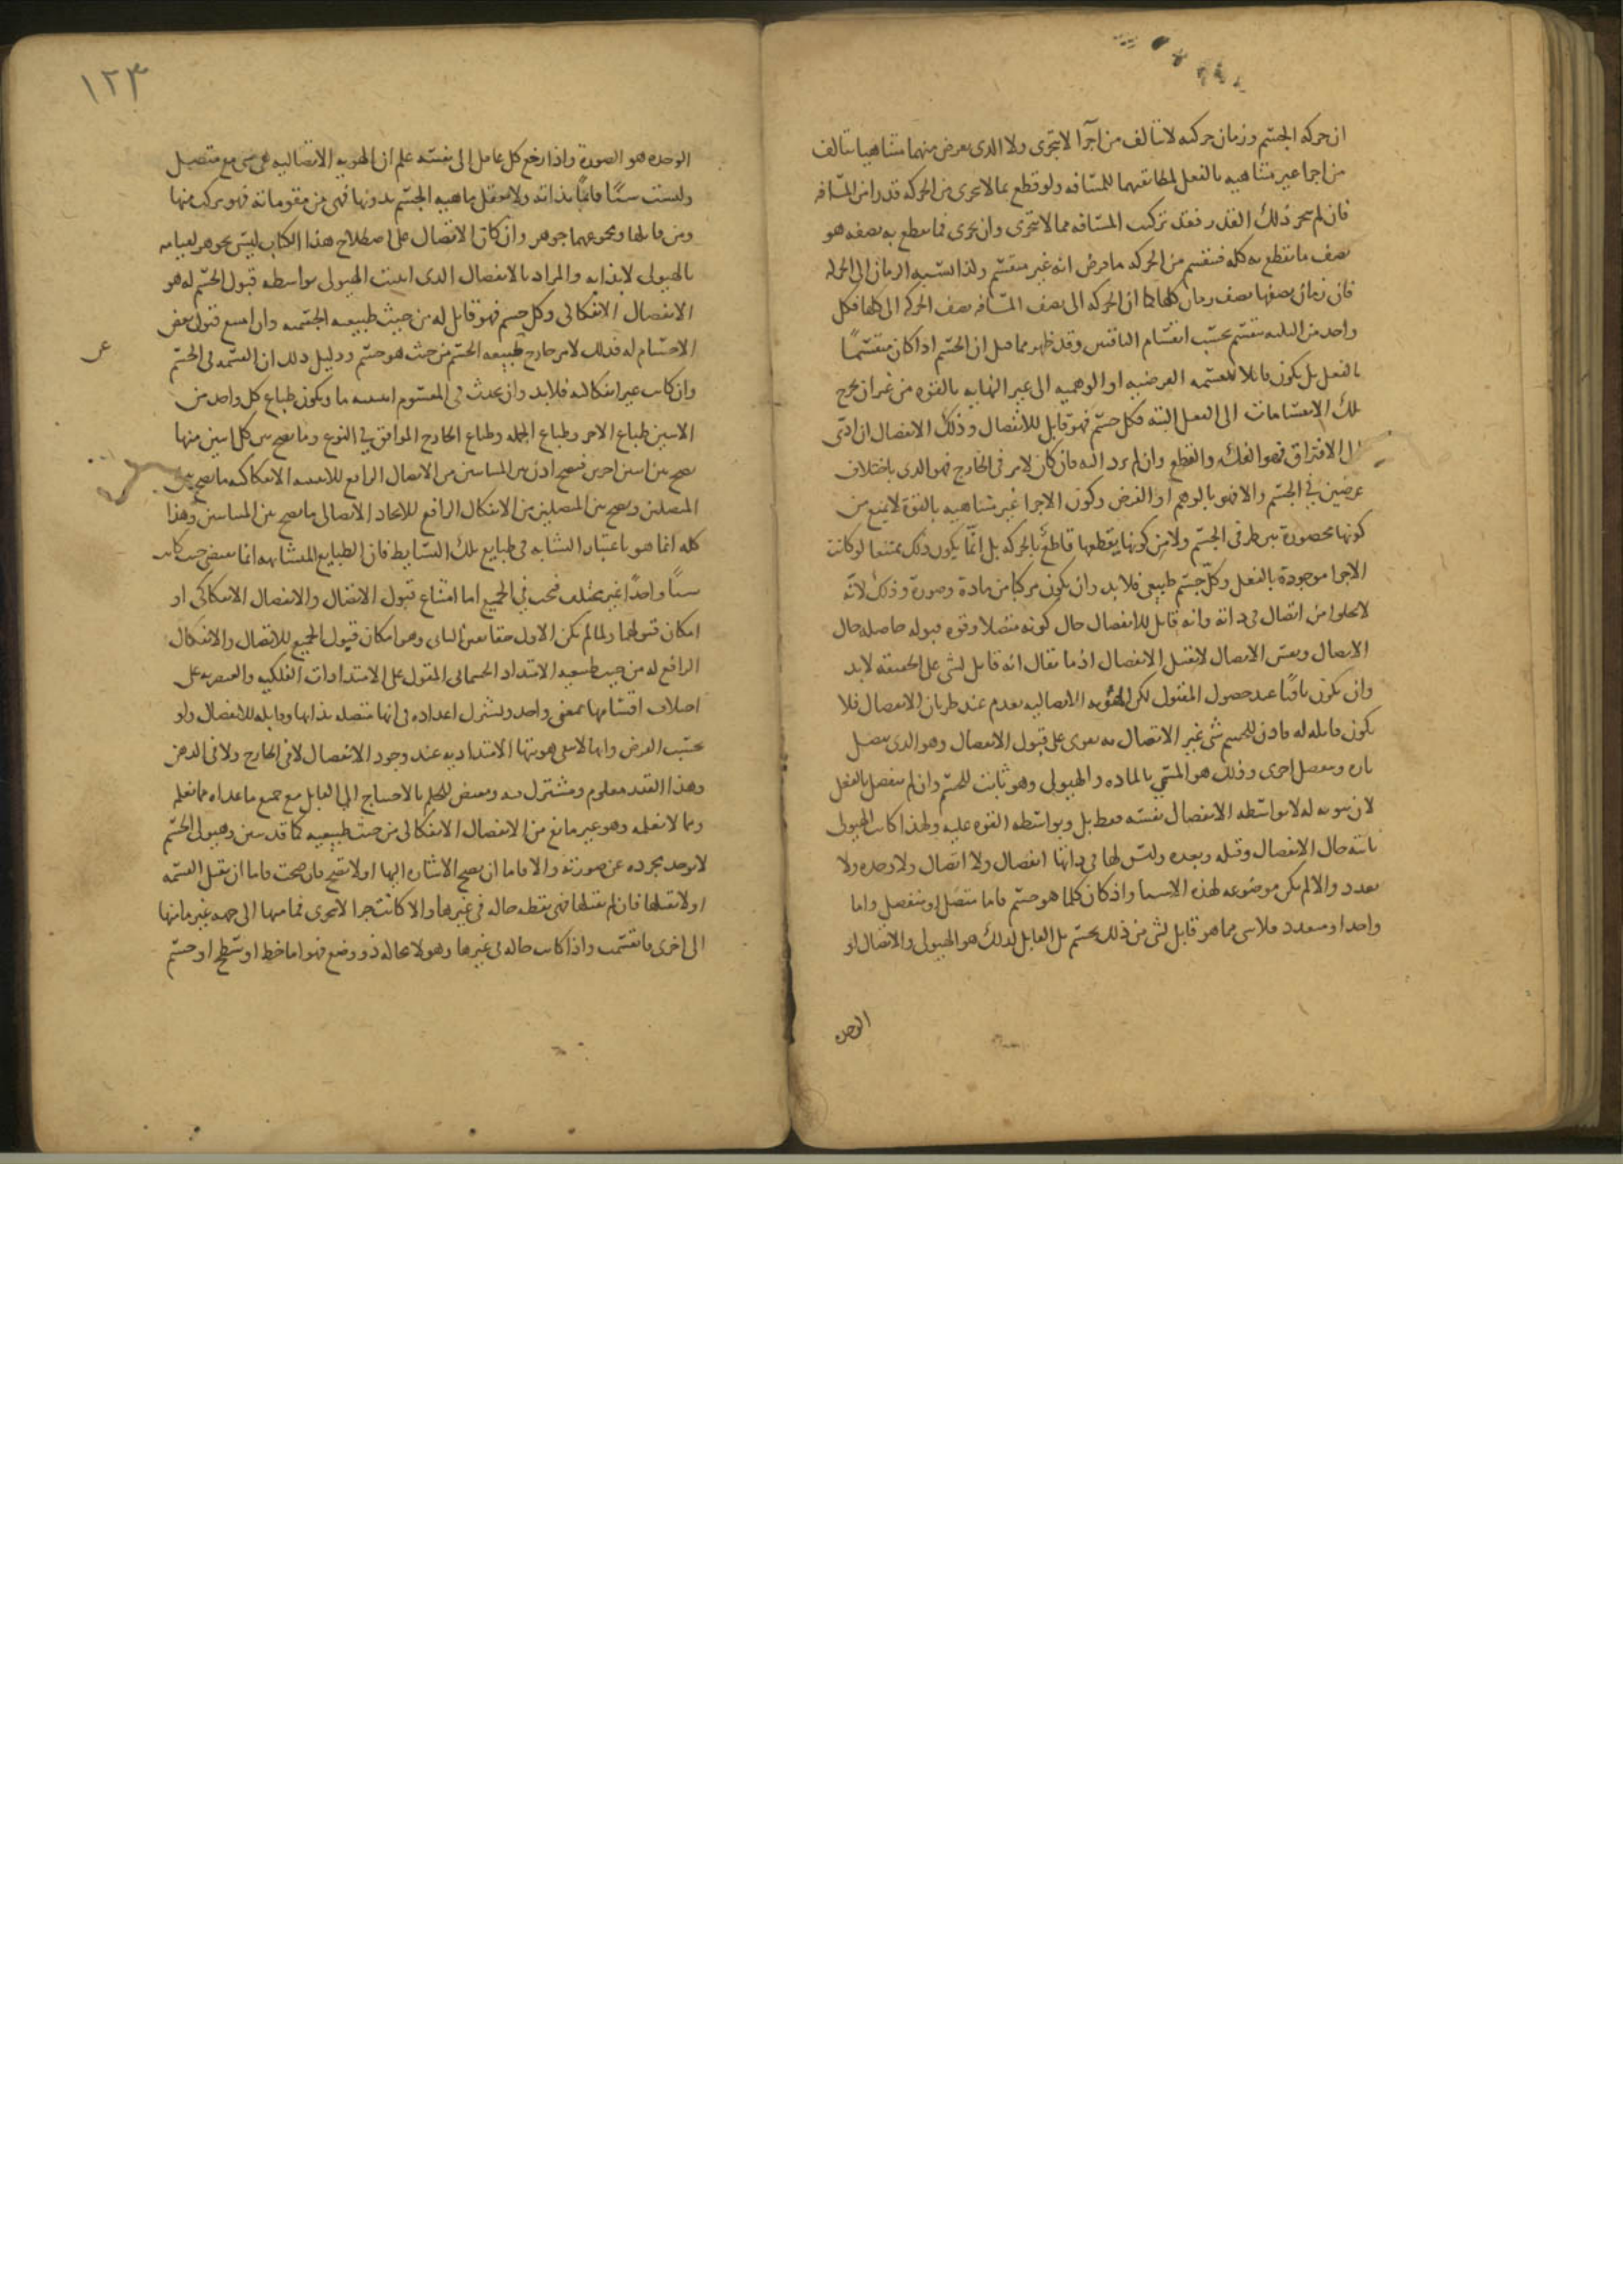 ان حركة الجسم وزمان حركته لا تتألف من اجزا لا تتجزى ولا الذى يعرض منهما متناهيا تتالف
من اجزا غير متناهية بالفعل لمطابقتهما للمسافة ولو قطع بما لا يتجزى من الحركة قدرا من المسافة
فان لم يتجز ذلك القدر فقد تركبت المسافة مما لا يتجزى وان تجزى فما يقطع به نصفه هو
نصف ما يقطع به كله فينقسم من الحركة ما فرض انه غير منقسم وكذا نسبة الزمان الى الحركة
فان زمان نصفها نصف زمان كلها كما ان الحركة الى نصف المسافة نصف الحركة الى كلها فكل
واحد من الثلثة ينقسم بحسب انقسام الباقيين وقد ظهر مما قيل ان الجسم اذا كان منقسما
بالفعل بل يكون قابلا للقسمة الفرضية او الوهمية الى غير النهاية بالقوة من غير ان يخرج
تلك الانقسامات الى الفعل البتة فكل جسم فهو قابل للانفصال وذلك الانفصال ان ادى
الى الافتراق فهو الفك والقطع وان لم يرد اليه فان كان لامر فى الخارج فهو الذى باختلاف
عرضين فى الجسم والا فهو بالوهم او الفرض وكون الاجزا غير متناهية بالقوة لا يمنع من
كونها محصورة بين طرفى الجسم ولا من كونها يقطعها قاطع بالحركة بل انما يكون ذلك ممتنعا لو كانت
الاجزا موجودة بالفعل وكل جسم طبيعى فلا بد وان يكون مركبا من مادة وصورة وذلك لانه
لا يخلوا من اتصال فى ذاته وانه قابل للانفصال حال كونه متصلا وقوة قبوله حاصلة حال
الاتصال ونفس الاتصال لا يقبل الانفصال اذ ما يقال انه قابل لشى على الحقيقة لا بد
وان يكون باقيا عند حصول المقبول لكن الهوية الاتصالية يعدم عند طريان الانفصال فلا
يكون قابلة له فاذن للجسم شى غير الاتصال به يقوى على قبول الانفصال وهو الذى يتصل
تارة وينفصل اخرى وذلك هو المسمى بالمادة والهيولى وهو ثابت للجسم وان لم ينفصل بالفعل
لان ثبوته له لا بواسطة الانفصال نفسه فقط بل وبواسطة القوة عليه ولهذا كانت الهيولى
ثابتة حال الانفصال وقبله وبعده وليس لها فى ذاتها انفصال ولا اتصال ولا وحدة ولا
تعدد والا لم يكن موضوعة لهذه الاشيا واذ كان كلما هو جسم فاما متصل او منفصل واما
واحد او متعدد فلا شى مما هو قابل لشى من ذلك بجسم بل القابل لذلك هو الهيولى والاتصال او
الوحدة
١٢٣
الوحدة هو الصورة واذا رجع كل عاقل الى نفسه علم ان الهوية الاتصالية هى شى مع متصل
وليست شيئا قائما بذاته ولا يعقل ماهية الجسم بدونها فهى من مقوماته فهو مركب منها
ومن قابلها ومجموعهما جوهر وان كان الاتصال على اصطلاح هذا الكتاب ليس بجوهر لقيامه
بالهيولى لا بذاته والمراد بالانفصال الذى اثبتت الهيولى بواسطة قبول الجسم له هو
الانفصال الانفكاكى وكل جسم فهو قابل له من حيث طبيعته الجسمية وان امتنع قبول بعض
الاجسام له فذلك لامر خارج طبيعة الجسم من حيث هو جسم ودليل ذلك ان القسمة فى الجسم
وان كانت غير انفكاكية فلا بد وان يحدث فى المقسوم اثنينية ما ويكون طباع كل واحد من
الاثنين طباع الاخر وطباع الجملة وطباع الخارج الموافق فى النوع وما يصح بين كل اثنين منها
يصح بين اثنين اخرين فيصح اذن بين المتباينين من الاتصال الرافع للاثنينية الانفكاكية ما يصح بين
المتصلين ويصح بين المتصلين من الانفكاك الرافع للاتحاد الاتصالى ما يصح بين المتباينين وهذا
كله انما هو باعتبار التشابه فى طبايع تلك البسايط فان الطبايع المتشابهة انما يقتضى حيث كانت
شيئا واحدا غير مختلف فيجب فى الجميع اما امتناع قبول الاتصال والانفصال الانفكاكى او
امكان قبولهما ولما لم يكن الاول حقا تعين الثانى وهو امكان قبول الجميع للاتصال والانفكاك
الرافع له من حيث طبيعة الامتداد الجسمانى المقول على الامتدادات الفلكية والعنصرية على
اختلاف اقسامها بمعنى واحد ويشترك اعداده فى انها متصلة بذاتها وقابلة للانفصال ولو
بحسب الفرض وانها لا يبقى هويتها الامتدادية عند وجود الانفصال لا فى الخارج ولا فى الذهن
وهذا القدر معلوم ومشترك فيه ومقتض للحكم بالاحتياج الى القابل مع جميع ما عداه مما نعلم
ومما لا نعلمه وهو غير مانع من الانفصال الانفكاكى من حيث طبيعته كما قد تبين وهيولى الجسم
لا توجد مجردة عن صورته والا فاما ان يصح الاشارة اليها او لا تصح فان صحت فاما ان يقبل القسمة
او لا تقبلها فان لم تقبلها فهى نقطة حالة فى غيرها والا كانت جزا لا يتجزى فما منها الى جهة غير ما منها
الى اخرى فانقسمت واذا كانت حالة فى غيرها وهو لا محالة ذو وضع فهو اما خط او سطح او جسم